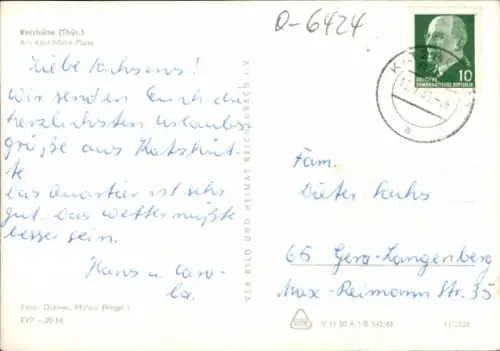 Katzhütte (Thür.)
Am Karl-Marx-Platz
D-6424
Liebe Sachsens!
Wir senden Euch die
herzlichsten Urlaubs
grüße aus Katzhüt-
te
Das Quartier ist sehr
gut. Das Wetter müßte
besser sein.
Hans u. Caro-
la.
Foto: Darmer, Mylau (Vogtl.)
EVP –,20 M
VEB BILD UND HEIMAT REICHENBACH i. V.
DEUTSCHE
DEMOKRATISCHE REPUBLIK
10
a
Fam.
Dieter Sachs
65 Gera-Langenberg
Max-Reimann Str. 35
V 11 50 A 1/B 542/68